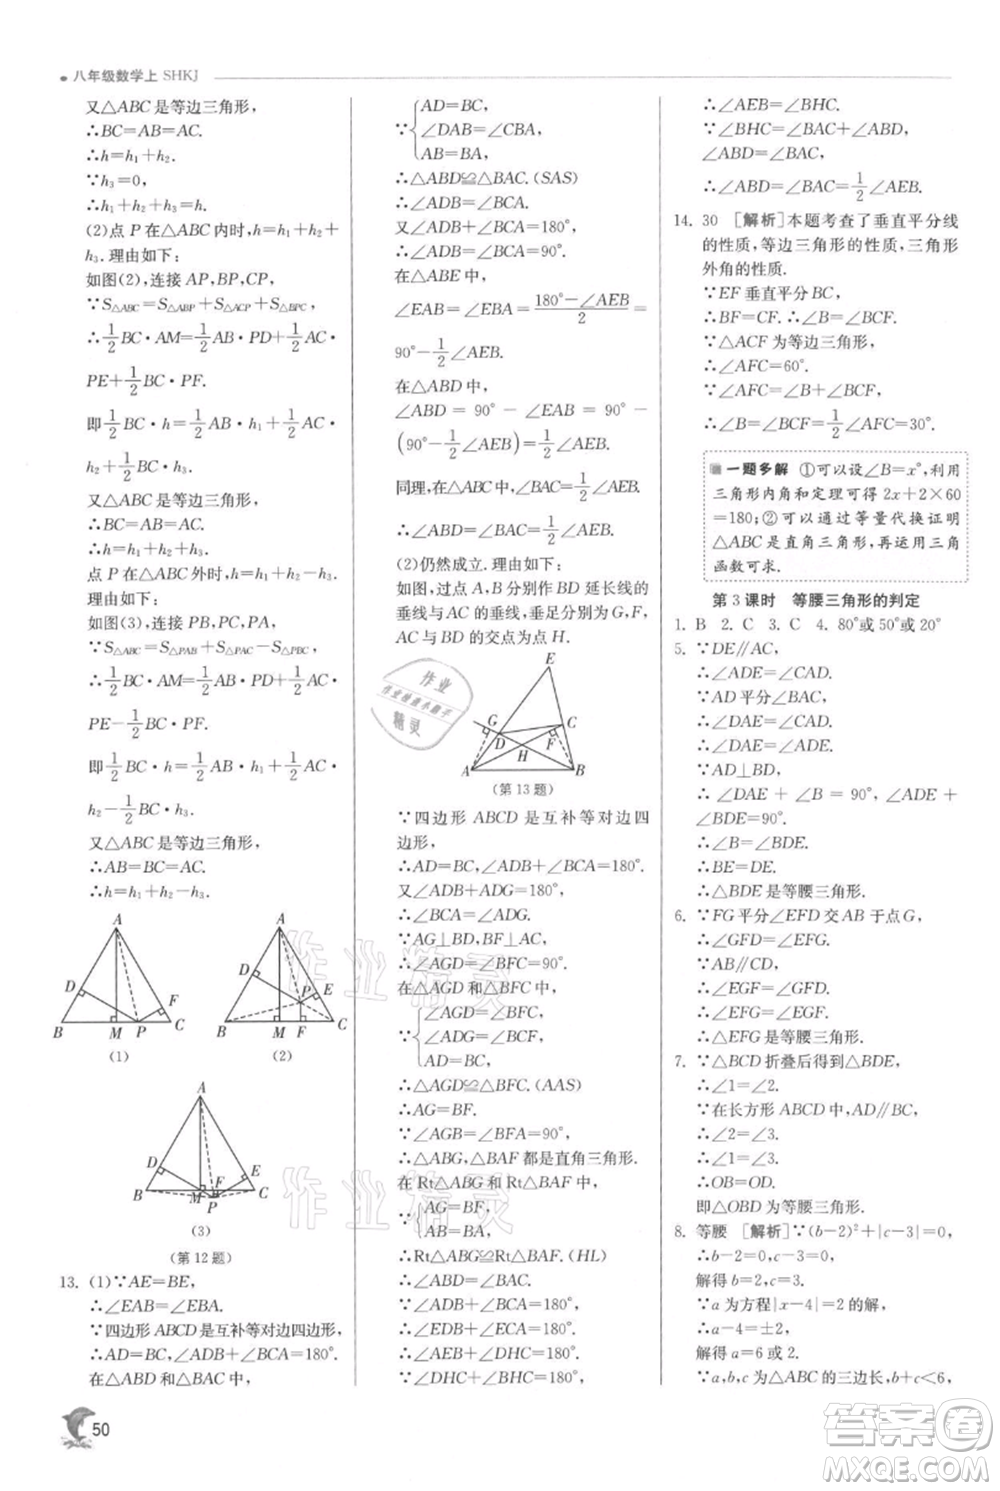 八年级数学上 SHKJ
又△ABC是等边三角形,
∴BC=AB=AC.
∴h=h₁+h₂.
∵h₃=0,
∴h₁+h₂+h₃=h.
(2)点 P 在△ABC 内时,h=h₁+h₂+
h₃.理由如下:
如图(2),连接 AP,BP,CP.
∵S△ABC=S△ABP+S△ACP+S△BPC,
∴1/2BC·AM=1/2AB·PD+1/2AC·
PE+1/2BC·PF.
即1/2BC·h=1/2AB·h₁+1/2AC·
h₂+1/2BC·h₃.
又△ABC是等边三角形,
∴AB=BC=AC.
∴h=h₁+h₂+h₃.
点 P 在△ABC 外时,h=h₁+h₂-h₃.
理由如下:
如图(3),连接 PB,PC,PA.
∵S△ABC=S△PAB+S△PAC-S△PBC,
∴1/2BC·AM=1/2AB·PD+1/2AC·
PE-1/2BC·PF.
即1/2BC·h=1/2AB·h₁+1/2AC·
h₂-1/2BC·h₃.
又△ABC是等边三角形,
∴AB=BC=AC.
∴h=h₁+h₂-h₃.
A
D
F
B
M
P
C
(1)
A
D
E
P
B
M
F
C
(2)
A
D
E
B
M
F
P
C
(3)
(第12题)
13. (1)∵AE=BE,
∴∠EAB=∠EBA.
∵四边形ABCD是互补等对边四边形,
∴AD=BC,∠EBA+∠ADC=180°.
在△ABD 和△BAC 中,
50
∵{AD=BC,
∠DAB=∠CBA,
AB=BA,
∴△ABD≌△BAC.(SAS)
∴∠ADB=∠BCA.
又∠ADB+∠BCA=180°,
∴∠ADB=∠BCA=90°.
在△ABE 中,
∠EAB=∠EBA=(180°-∠AEB)/2=
90°-1/2∠AEB.
在△ABD 中,
∠ABD = 90° - ∠EAB = 90° -
(90°-1/2∠AEB)=1/2∠AEB.
同理,∠BAC=1/2∠AEB.
∴∠ABD=∠BAC=1/2∠AEB.
(2)仍然成立.理由如下:
如图,过点A,B分别作BD延长线的
垂线与AC的垂线,垂足分别为G,F,
AC与BD的交点为点H.
E
G
C
D
F
H
A
B
(第13题)
∵四边形 ABCD 是互补等对边四
边形,
∴AD=BC,∠ADB+∠BCA=180°.
又∠ADB+∠ADG=180°,
∴∠BCA=∠ADG.
∵AG⊥BD,BF⊥AC,
∴∠AGD=∠BFC=90°.
在△AGD 和△BFC 中,
∵{∠AGD=∠BFC,
∠ADG=∠BCF,
AD=BC,
∴△AGD≌△BFC.(AAS)
∴AG=BF.
∵∠AGB=∠BFA=90°,
∴△ABG,△BAF 都是直角三角形.
在 Rt△ABG 和 Rt△BAF 中,
∵{AG=BF,
AB=BA,
∴Rt△ABG≌Rt△BAF.(HL)
∴∠ABD=∠BAC.
∵∠ADB+∠BCA=180°,
∴∠EDB+∠ECA=180°.
∴∠AEB+∠DHC=180°.
∵∠DHC+∠BHC=180°,
∴∠AEB=∠BHC.
∵∠BHC=∠BAC+∠ABD,
∠ABD=∠BAC,
∴∠ABD=∠BAC=1/2∠AEB.
14. 30 [解析]本题考查了垂直平分线
的性质,等边三角形的性质,三角形
外角的性质.
∵EF垂直平分BC,
∴BF=CF. ∴∠B=∠BCF.
∵△ACF为等边三角形,
∴∠AFC=60°.
∵∠AFC=∠B+∠BCF,
∴∠B=1/2∠AFC=30°.
一题多解 ①可以设∠B=x°,利用
三角形内角和定理可得 2x+2×60
=180;②可以通过等量代换证明
△ABC是直角三角形,再运用三角
函数可求.
第3课时 等腰三角形的判定
1. B 2. C 3. C 4. 80°或50°或20°
5. ∵DE∥AC,
∴∠ADE=∠CAD.
∵AD平分∠BAC,
∴∠DAE=∠CAD.
∴∠DAE=∠ADE.
∵AD⊥BD,
∴∠DAE + ∠B = 90°, ∠ADE +
∠BDE=90°.
∴∠B=∠BDE.
∴BE=DE.
∴△BDE是等腰三角形.
6. ∵FG平分∠EFD交AB于点G,
∴∠GFD=∠EFG.
∵AB∥CD,
∴∠EGF=∠GFD.
∴∠EFG=∠EGF.
∴△EFG是等腰三角形.
7. ∵△BCD折叠后得到△BDE,
∴∠1=∠2.
∵在长方形 ABCD 中,AD∥BC,
∴∠2=∠3.
∴∠1=∠3.
∴OB=OD.
即△OBD为等腰三角形.
8. 等腰 [解析]∵(b-2)²+|c-3|=0,
∴b-2=0,c-3=0,
解得b=2,c=3.
∵a为方程|x-4|=2的解,
∴a-4=±2,
解得a=6或2.
∵a,b,c为△ABC的三边长,b+c<6,
作业
作业精灵
精灵
作业精灵
作业精灵
答案卷
MXQE.COM